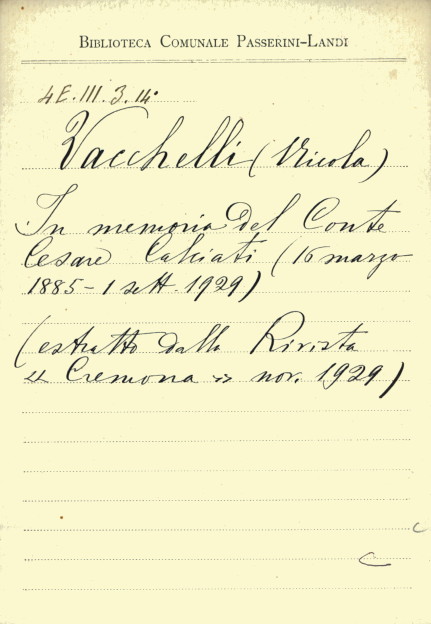 BIBLIOTECA COMUNALE PASSERINI-LANDI
4E.III.3.14°
Vacchelli (Nicola)
In memoria del Conte
Cesare Calciati (16 marzo
1885-1 sett. 1929)
(estratto dalla Rivista
« Cremona » nov. 1929)